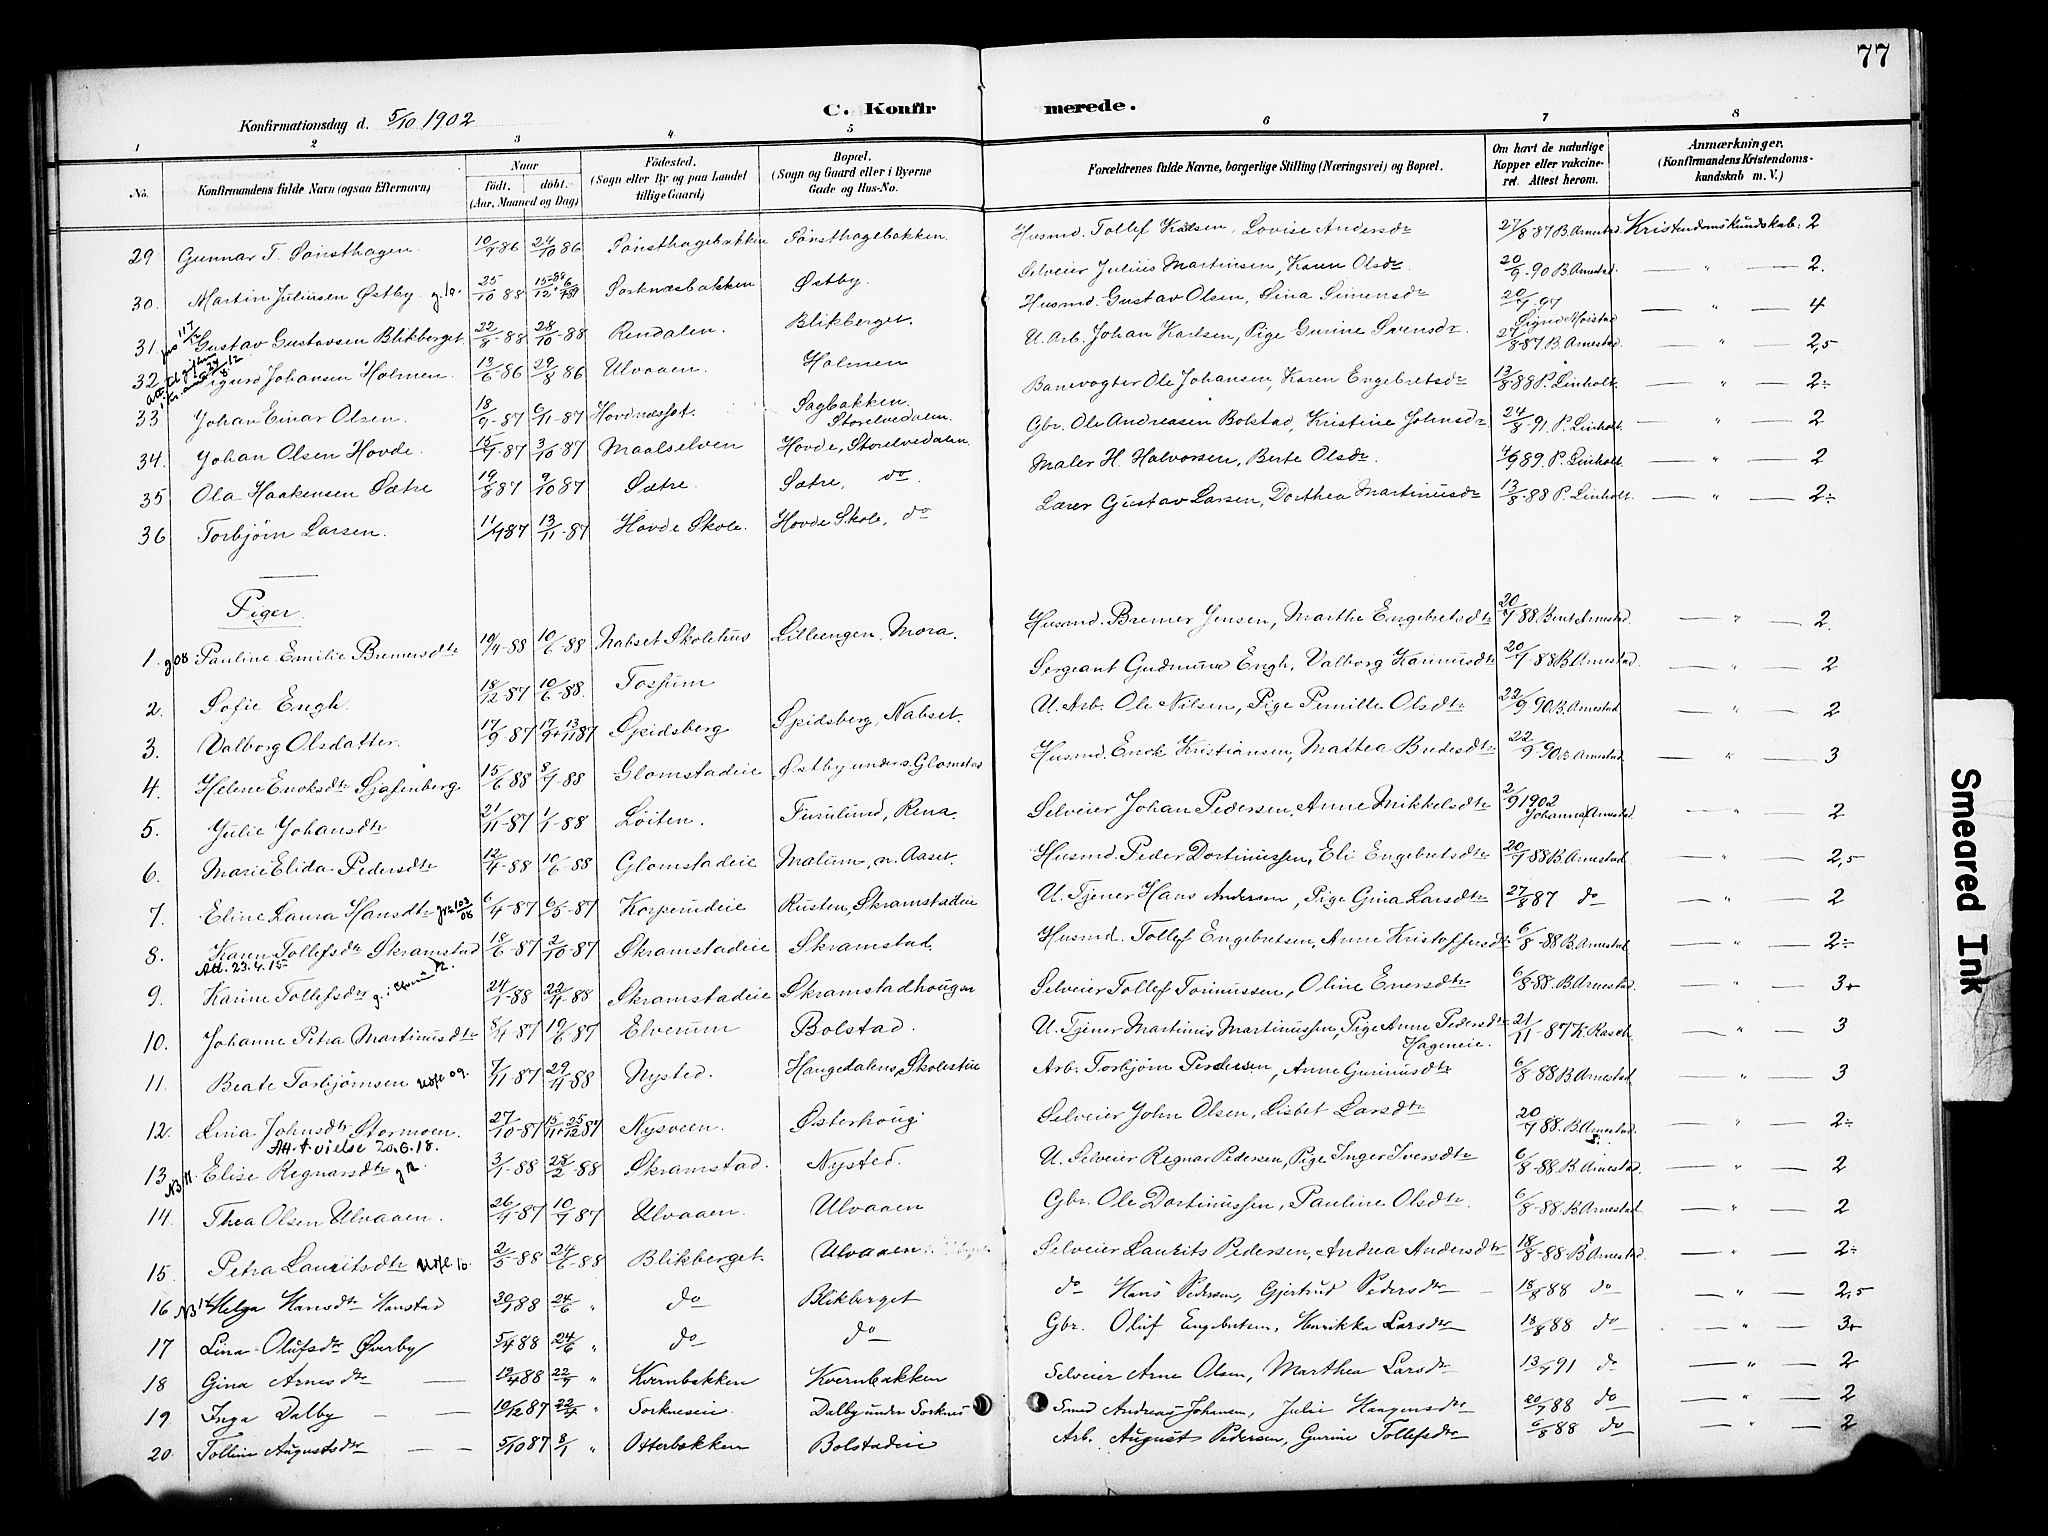 77
C. Konfirmerede.
Konfirmationsdag d. 5/10 1902
1 2 3 4 5 6 7 8
No.
Konfirmandens fulde Navn (ogsaa Efternavn)
Naar
født. døbt.
(Aar, Maaned og Dag)
Fødested.
(Sogn eller By og paa Landet
tillige Gaard)
Bopæl.
(Sogn og Gaard eller i Byerne
Gade og Hus-No.
Forældrenes fulde Navne, borgerlige Stilling (Næringsvei) og Bopæl.
Om havt de naturlige
Kopper eller vakcine-
ret. Attest herom.
Anmærkninger.
(Konfirmandens Kristendoms-
kundskab m. V.)
29 Gunnar T. Sønsthagen. 10/9 86 24/10 86 Sønsthagebakken Sønsthagebakken. Husmd. Tollef Karlsen, Lovise Andersdtr 27/8 87 B. Arnestad Kristendomskundskab: 2
30. Martin Juliussen Østby. 25/10 88 Sorknæsbakken Østby. Selveier Julius Martinsen, Karen Olsdtr. 20/9 90 B. Arnestad. — " — 2.
31. Gustav Gustavsen Blikberget. 22/9 88 28/10 88 Rendalen. Blikberget. Husmd. Gustav Olsen, Lina Simensdtr 20/9 97 Sigrid Moistad — " — 4
32 Sigurd Johansen Holmen. 13/6 86 29/8 86 Ulvaaen. Holmen U. Arb. Johan Karlsen, Pige Gunine Svensdtr. 27/8 87 B. Arnestad. — " — 2,5
33 Johan Einar Olsen. 18/9 87 6/11 87 Hovdnæsset. Sagbakken. Storelvedalen. Banevogter Ole Johansen, Karen Engebretsdtr 13/8 88 P. Linholt. — " — 2÷
34. Johan Olsen Hovde. 15/7 87 3/10 87 Maalselven Hovde, Storelvedalen. Gbr. Ole Andreasen Bolstad, Kristine Johnsdtr 24/8 91 P. Linholt. — " — 2
35 Ola Haakensen Sætre 19/8 87 9/10 87 Sætre. Sætre, do Maler H. Halvorsen, Berte Olsdtr. 4/9 89. P. Linholt. — " — 2
36 Torbjørn Larsen. 11/9 87 13/11 87 Hovde Skole. Hovde Skole, do Lærer Gustav Larsen, Dorthea Martinusdtr 13/8 88 P. Linholt. — " — 2÷
Piger.
1. g 08 Pauline Emilie Bremersdtr 19/4 88 10/6 88 Nabset Skolehus Lilleengen, Mora. Husmd. Bremer Jensen, Marthe Engebretsdtr 20/9 88. Bent Arnestad — " — 2.
2. Sofie Engh. 18/12 87 10/6 88. Tossum Sergeant Gudmund Engh, Valborg Karinusdtr 20/9 88 B. Arnestad. — " — 2
3. Valborg Olsdatter. 17/9 87 Spidsberg Spidsberg, Nabset. U. Arb. Ole Nilsen, Pige Pernille Olsdtr 22/9 90 B. Arnestad — " — 2
4. Helene Enoksdtr Sjøfenberg 15/6 88 8/9 88 Glomstadeie Østby under Glomstad Husmd. Enok Kristiansen, Mathea Bredesdtr 22/9 90 B. Arnestad — " — 3
5. Julie Johansdtr 21/11 87 1/1 88 Løiten. Furulund, Rena. Selveier Johan Pedersen, Anne Mikkelsdtr 2/9 1902 Johannes Arnestad. — " — 2
6. Marie Elida Pedersdtr 12/4 88 10/6 88 Glomstadeie Malum, n. Aaset. Husmd. Peder Dortinussen, Eli Engebretsdtr 20/9 88 B. Arnestad — " — 2,5
7. Eline Laura Hansdtr 6/4 87 6/5 87 Korpereideie Rusten, Skramstadeie U. Tjener Hans Andersen, Pige Gina Larsdtr 27/8 87 do — " — 2
8. Karen Tollefsdtr Skramstad 18/6 87 2/10 87 Skramstadeie Skramstad. Husmd. Tollef Engebretsen, Anne Kristoffersdtr 6/8 88 B. Arnestad — " — 2÷
Att. 23.4.15.
9. Karine Tollefsdtr 24/1 88 22/4 88 Skramstadeie Skramstadhougen Selveier Tollef Torinussen, Oline Enersdtr 6/8 88. B. Arnestad. — " — 3+
10. Johanne Petra Martinusdtr 8/4 87 19/6 87 Elverum Bolstad. U. Tjener Martinus Martinussen, Pige Anne Pedersdtr Hageneie. 21/11 87 K. Rasch — " — 3
11. Beate Torbjørnsen 7/11 87 29/4 88 Nysted. Haugedalens Skolestue Arb. Torbjørn Pedersen, Anne Gurinusdtr 6/8 88 B. Arnestad — " — 3
12. Lina Johnsdtr Stormoen. 27/10 87 Nysveen. Østerhoug Selveier John Olsen, Lisbet Larsdtr 20/9 88. B. Arnestad. — " — 2÷
Att. t. vielse 20.6.18.
13. Elise Regnarsdtr 3/1 88 28/2 88 Skramstad. Nysted. U. Selveier Regnar Pedersen, Pige Inger Iversdtr 6/8 88 B. Arnestad. — " — 2
14. Thea Olsen Ulvaaen. 26/4 87 10/7 87 Ulvaaen. Ulvaaen Gbr. Ole Dortinussen, Pauline Olsdtr. 6/8 88. B. Arnestad — " — 2
15. Petra Lauritsdtr 2/5 88 24/6 88 Blikberget. Ulvaaen Selveier Laurits Pedersen, Andrea Andersdtr 18/8 88. B. Arnestad. — " — 2÷
16 Helga Hansdtr Hanstad 24/6 " do Blikberget do Hans Pedersen, Gjertrud Pedersdtr — 18/8 88 do — " — 2,5
17 Lina Olufsdtr Øverby 5/4 88 24/6 " do do Gbr. Oluf Engebretsen, Henrikka Larsdtr 13/8 88 do — " — 3+
18 Gina Arnesdtr — 19/4 88 22/7 " Kvernbakken Kvernbakken Selveier Arne Olsen, Marthea Larsdtr 13/9 91 do — " — 2
19. Inga Dalby — — 10/12 87 22/4 " Sorkneseie Dalby under Sorknes Smed Andreas Johansen, Julie Haagensdtr 20/9 88 do — " — 2
20. Tolline Augustsdtr — — 5/10 87 8/1 " Otterbakken Bolstadeie Arb. August Pedersen, Gurine Tollefsdtr 6/8 88 do — " — 2
Smeared Ink